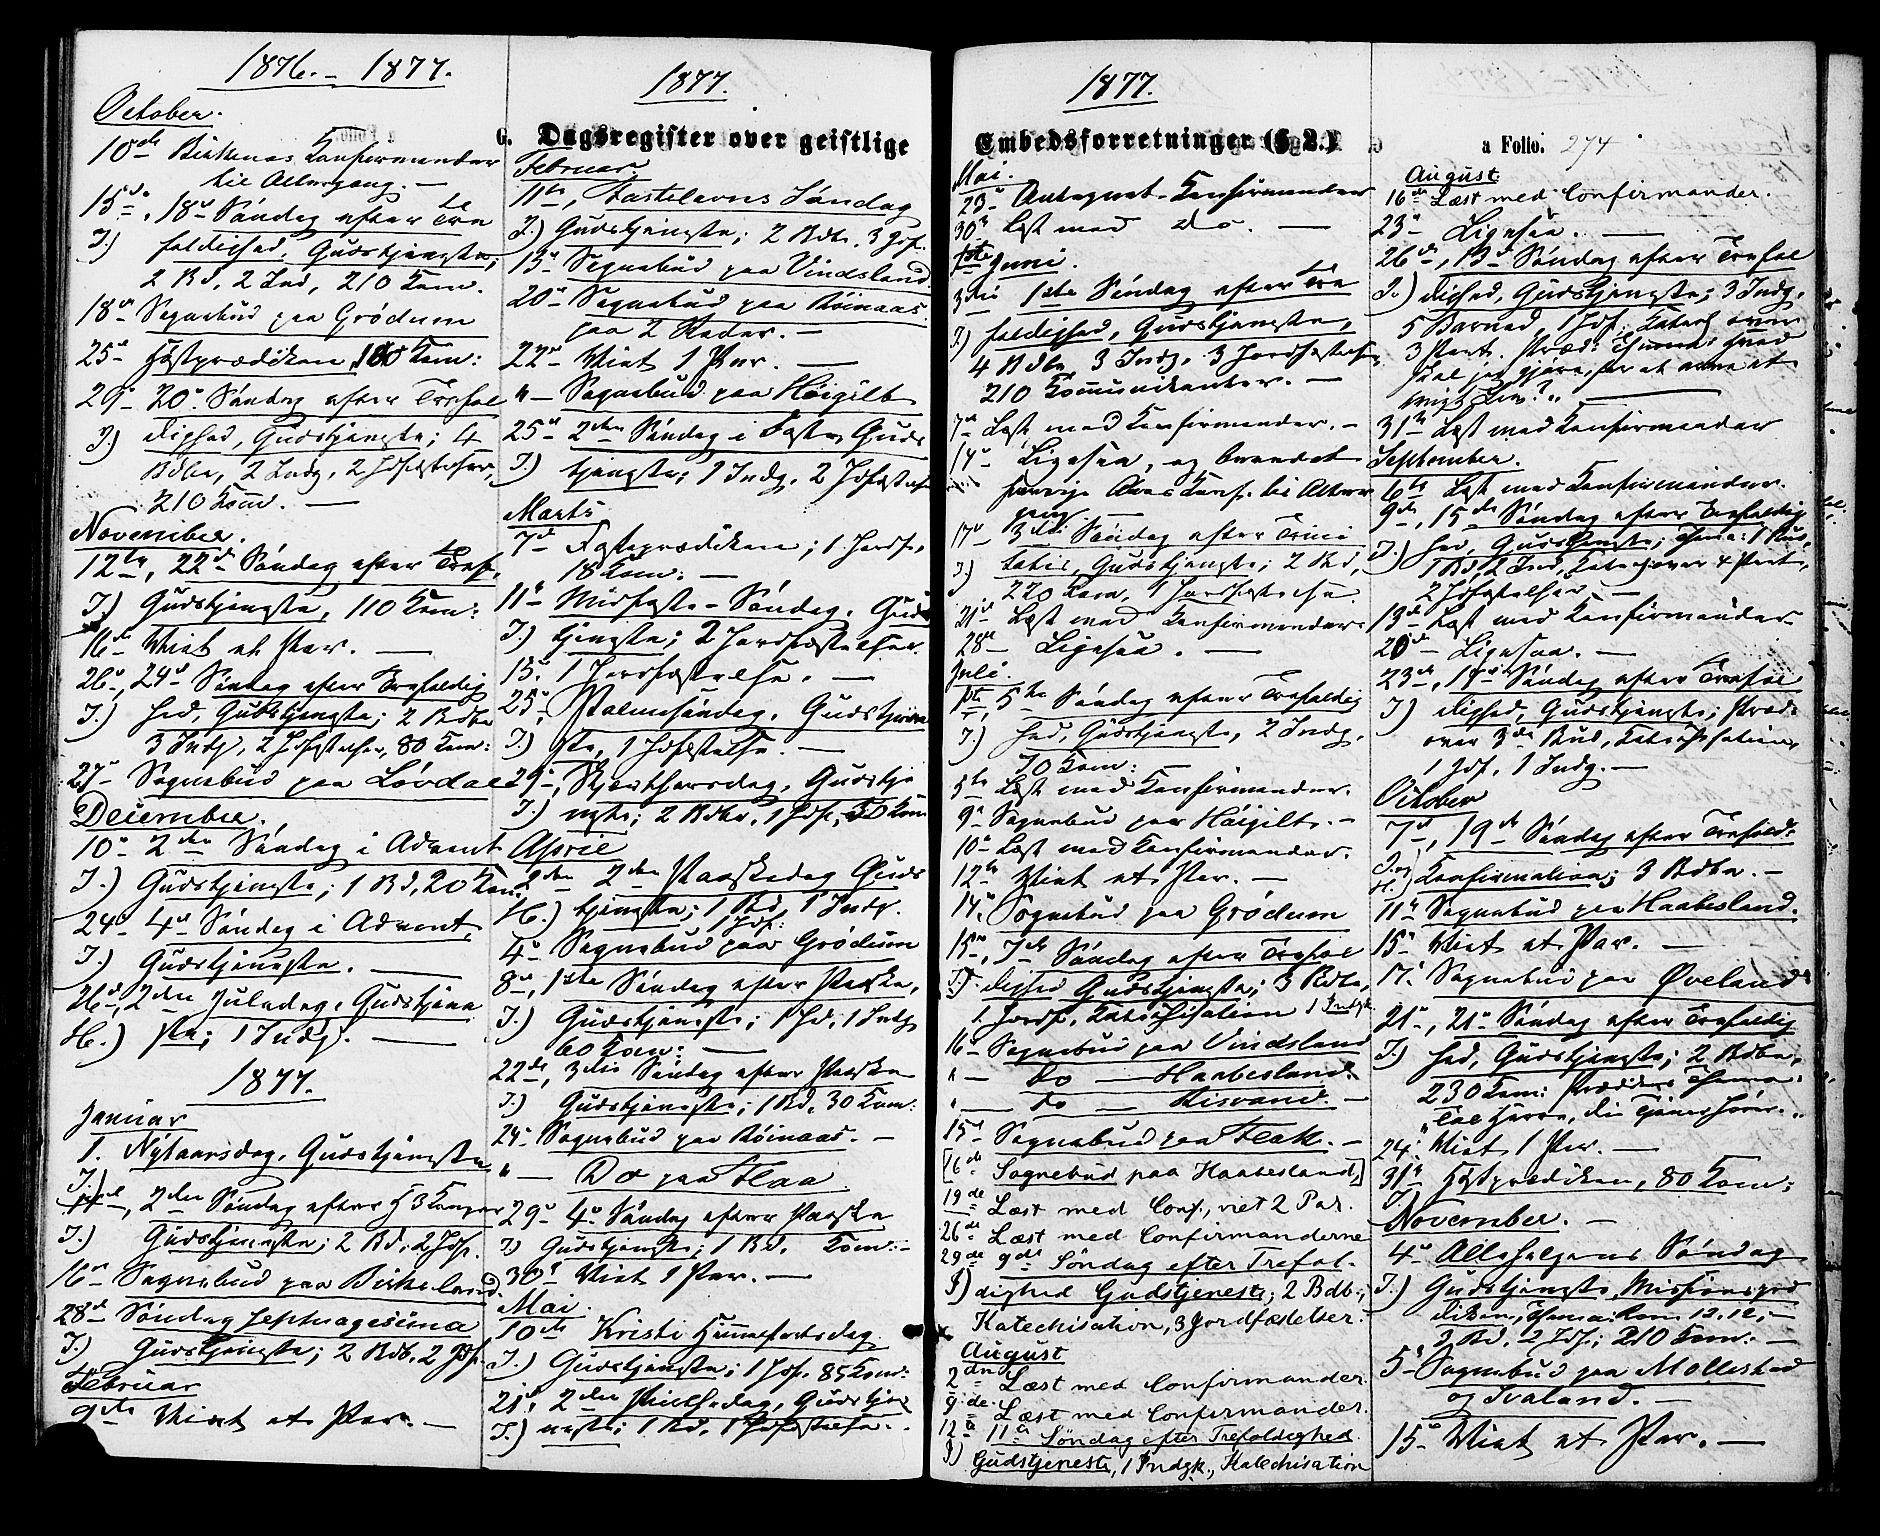 1876. – 1877.
October.
10de Birkenes Konfirmander
til Altergang. –
15de, 18de Søndag efter Tre
I.) foldighed, Gudstjeneste;
2 Bd, 2 Ind, 210 Kom.
18de Sognebud paa Grødum
25de Høstprædiken, 100 Kom:
29de 20de Søndag efter Trefol
I.) dighed, Gudstjeneste; 4
Bdbe, 2 Indg, 2 Jdfæstelser,
210 Kom. –
November.
12te, 22de Søndag efter Tref.
I.) Gudstjeneste, 110 Kom:
16de Viet et Par. –
26de, 24de Søndag efter Trefoldig
I.) hed, Gudstjeneste; 2 Bdbe
3 Indg, 2 Jdfæstelser, 80 Kom:
27de Sognebud paa Løvdal
December.
10de 2den Søndag i Advent
I.) Gudstjeneste; 1 Bd, 20 Kom.
24de 4de Søndag i Advent,
I.) Gudstjeneste. –
26de, 2den Juledag, Gudstjene
H.) ste; 1 Indg. –
1877.
Januar
1. Nytaarsdag, Gudstjeneste
I.)
14de, 2den Søndag efter H 3 Konger
I.) Gudstjeneste; 2 Bd, 2 Jdf.
16de Sognebud paa Birkeland.
28de Søndag Septuagesima
I.) Gudstjeneste; 2 Bdb, 2 Jdf.
Februar
9de Viet et Par. –
1877.
G. Dagsregister over geistlige
Februar.
11te, Fastelavns Søndag
I.) Gudstjeneste; 2 Bdb, 3 Jdf.
13de Sognebud paa Vindsland
20de Sognebud paa Røinaas.
paa 2 Steder. –
22de Viet 1 Par. –
" – Sognebud paa Høigilt
25de 2den Søndag i Faste, Guds
I.) tjeneste; 1 Indg, 2 Jdfæstelser
Marts
7de Fasteprædiken; 1 Jordf,
18 Kom. –
11te Midfaste-Søndag, Guds
I.) tjeneste; 2 Jordfæstelser.
13. 1 Jordfæstelse. –
25de, Palmesøndag, Gudstjene
I.) ste, 1 Jdfæstelse. –
29de, Skjærthorsdag, Gudstje
I.) neste; 2 Bdbe, 1 Jdf, 50 Kom
April
2den 2den Paaskedag Guds
H.) tjeneste; 1 Bd, 1 Indg.
1 Jdf:
4de Sognebud paa Grødum
8de, 1ste Søndag efter Paaske,
I.) Gudstjeneste; 1 Jd, 1 Indg
60 Kom: –
22de, 3die Søndag efter Paaske
I.) Gudstjeneste; 1 Bd, 30 Kom:
24de Sognebud paa Røinaas. –
" – Do paa Flaa.
29de 4de Søndag efter Paaske
I.) Gudstjeneste; 1 Bd, Kom: –
30te Viet 1 Par. –
Mai.
10de Kristi Himmelfartsdag
I.) Gudstjeneste; 1 Jdf. 85 Kom:
21de, 2den Pintsedag, Gudstje
I.) neste; 1 Bd, 1 Jdfæstelse. –
1877.
Embedsforretninger (§ 2.)
Mai.
23de Antegnet Konfirmander
30te Læst med do. –
Juni.
3die 1ste Søndag efter Tre
I.) foldighed, Gudstjeneste,
4 Bdbe, 3 Indg, 3 Jordfæstelser,
210 Kommunikanter. –
7de Læst med Konfirmander. –
14de Ligesaa, og
forrige Aars Konf. til Alter
gang –
17de 3die Søndag efter Trini
I.) tatis, Gudstjeneste; 2 Bd,
220 Kom, 1 Jordfæstelse
21de Læst med Konfirmander.
28de Ligesaa. –
Juli.
1ste, 5te Søndag efter Trefoldig
I.) hed, Gudstjeneste, 2 Indg.
70 Kom: –
5te Læst med Konfirmander.
9de Sognebud paa Høigilt. –
10de Læst med Konfirmander.
12te Viet et Par. –
14de Sognebud paa Grødum
15de, 7de Søndag efter Trefol
I.) dighed Gudstjeneste; 3 Bdbe,
1 Jordf, Katechisation 1 Indgk
16de Sognebud paa Vindsland
" – do – Haabesland.
" – do – Risvand. –
15de Sognebud paa Flak. –
[16de Sognebud paa Haabesland,]
19de Læst med Conf., viet 2 Par.
26de Læst med Confirmanderne
29de 9de Søndag efter Trefol.
I) dighed Gudstjeneste; 2 Bdb.;
Katechisation, 3 Jordfæstelser.
August
2den Læst med Confirmander.
9de Læst med Confirmander.
12te 11te Søndag efter Trefoldighed.
I) Gudstjeneste, 1 Indgk., Katechisation
a Folio. 274
August
16de Læst med Confirmander.
23de Ligesaa. –
26de, 13de Søndag efter Trefol
I.) dighed, Gudstjeneste; 3 Indg,
5 Barned, 1 Jdf: Katech over
3 Part. Præd: Thema: Hvad
skal jeg gjøre, for at
mit Liv? " –
31te Læst med Konfirmander
September.
6te Læst med Konfirmander.
9de, 15de Søndag efter Trefoldig
I.) hed, Gudstjeneste; Thema: 1 Bud,
1 Bd, 1 Ind, Katech over 4 Part,
2 Jdfæstelser –
13de Læst med Konfirmander
20de Ligesaa. –
23de, 17de Søndag efter Trefol
I.) dighed, Gudstjeneste; Præd:
over 3die Bud, Katechisation,
1 Jdf, 1 Indg. –
October
7de, 19de Søndag efter Trefold:
I. og H.) Konfirmation; 3 Bdbe. –
11te Sognebud paa Haabesland.
15de Viet et Par. –
17. Sognebud paa Øveland
21de, 21de Søndag efter Trefoldig
I.) hed, Gudstjeneste; 2 Bdbe,
230 Kom: Prædiken Thema:
"Tal Herre, din Tjener hører. "
24: Viet 1 Par. –
31te Høstprædiken, 80 Kom;
I.)
November. –
4de Allehelgens Søndag
I.) Gudstjeneste Missionspræ
diken, Thema: Rom 12.12, –
2 Bd. 2 Jdf; 210 Kom. –
5te Sognebud paa Mollestad
og Tvaland. –
15de Viet et Par. –